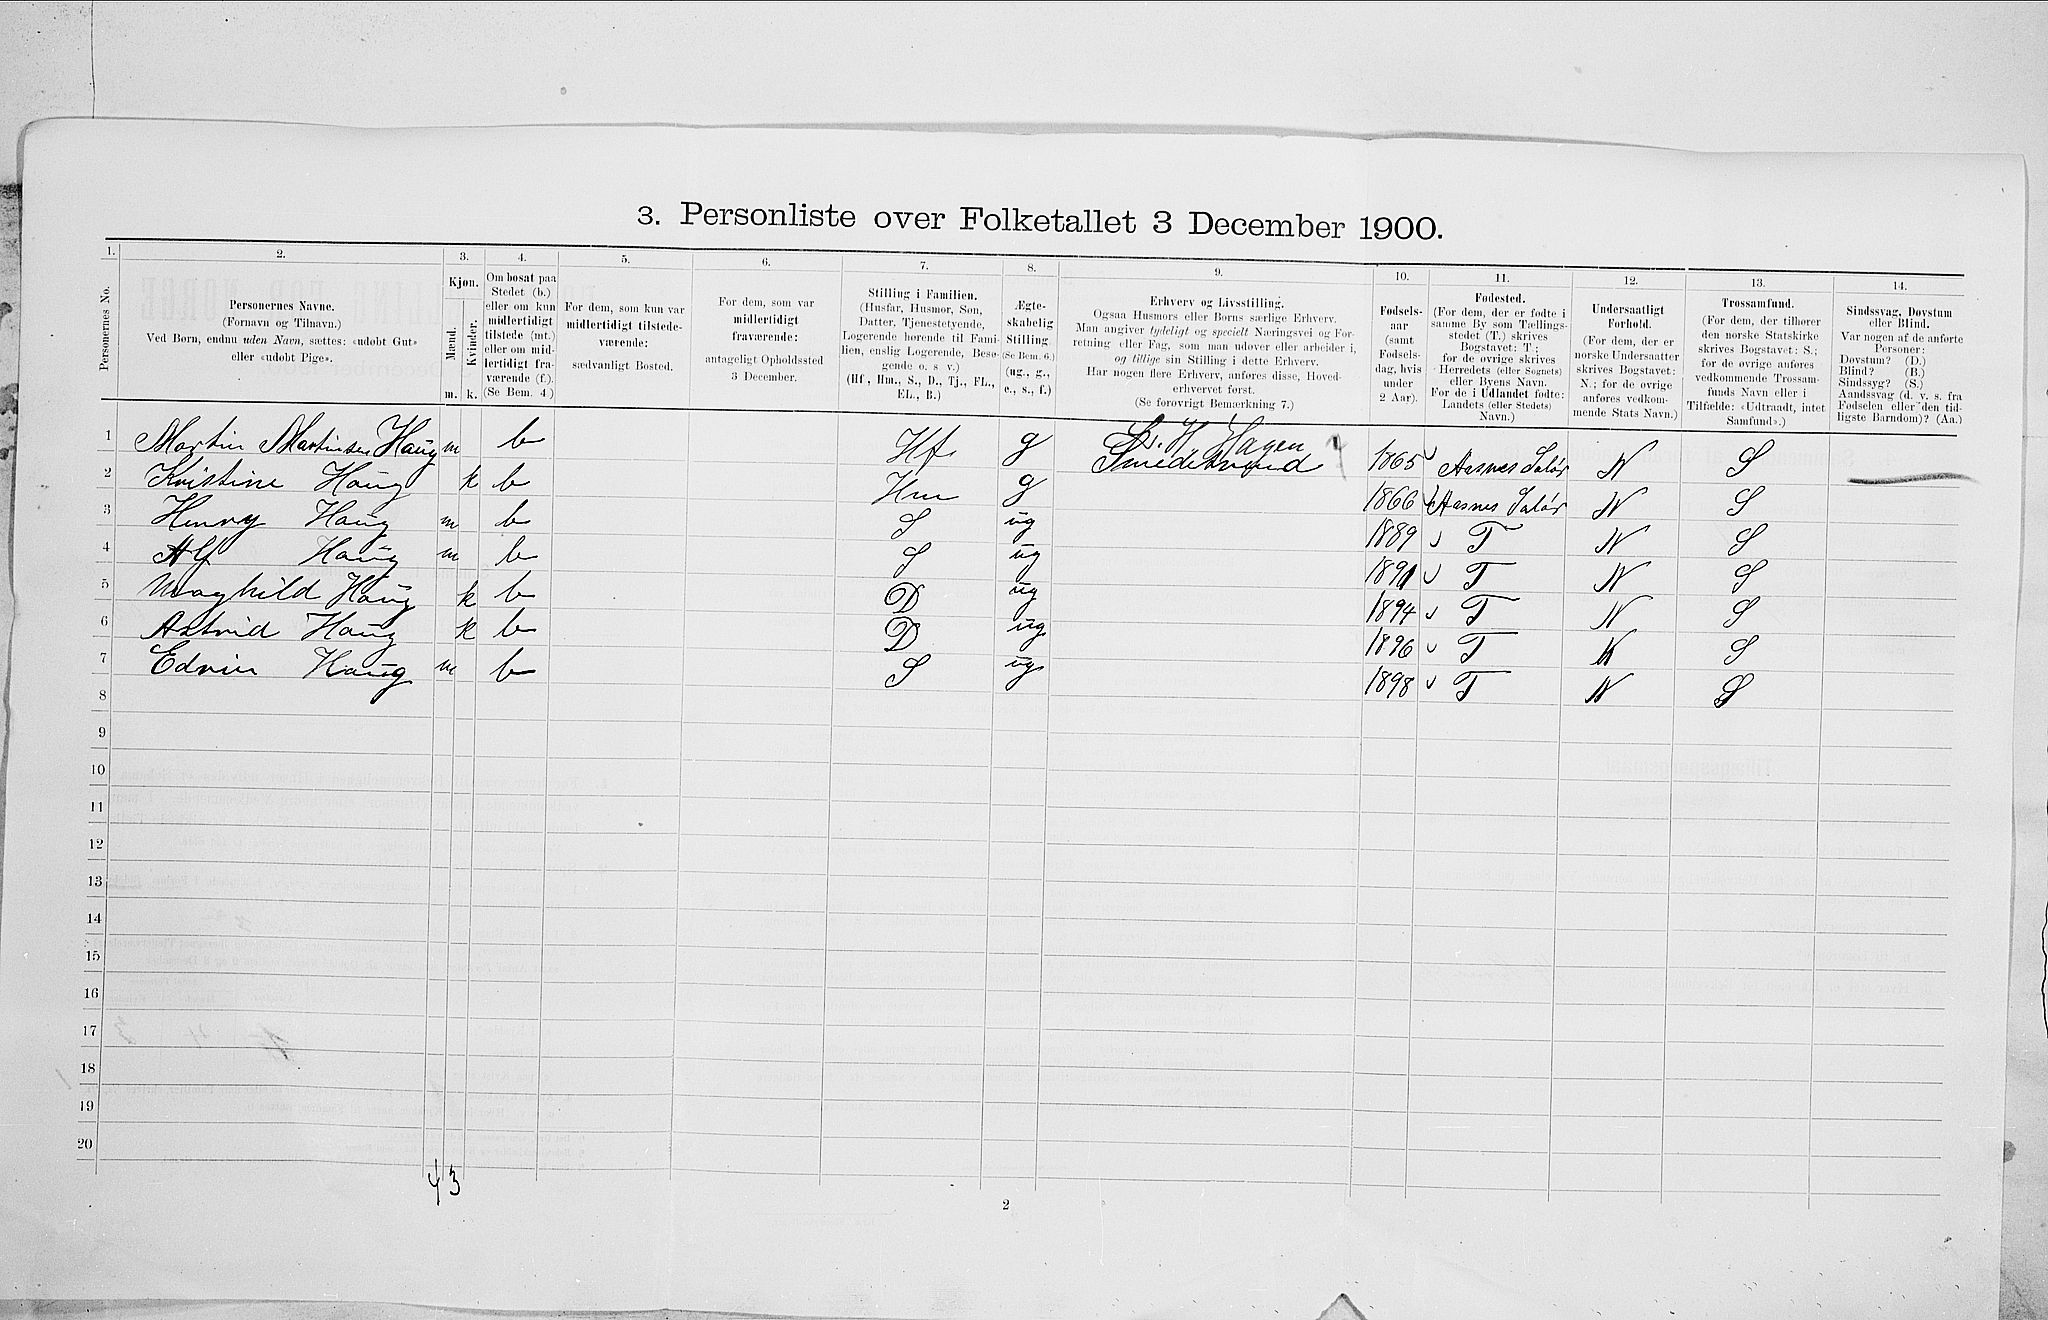 3. Personliste over Folketallet 3 December 1900.
1. 2. 3. 4. 5. 6. 7. 8. 9. 10. 11. 12. 13. 14.
Personernes No.
Personernes Navne.
(Fornavn og Tilnavn.)
Ved Børn, endnu uden Navn, sættes: «udøbt Gut»
eller «udøbt Pige».
Kjøn.
Mænd.
Kvinder.
m. k.
Om bosat paa
Stedet (b.)
eller om kun
midlertidigt
tilstede (mt.)
eller om mid-
lertidigt fra-
værende (f.).
(Se Bem. 4.)
For dem, som kun var
midlertidigt tilstede-
værende:
sædvanligt Bosted.
For dem, som var
midlertidigt
fraværende:
antageligt Opholdssted
3 December.
Stilling i Familien.
(Husfar, Husmor, Søn,
Datter, Tjenestetyende,
Logerende hørende til Fami-
lien, enslig Logerende, Besø-
gende o. s v.)
(Hf, Hm., S., D., Tj., FL.,
EL., B.)
Ægte-
skabelig
Stilling.
(Se Bem. 6.)
(ug., g.,
e., s., f.)
Erhverv og Livsstilling.
Ogsaa Husmors eller Børns særlige Erhverv.
Man angiver tydeligt og specielt Næringsvei og For-
retning eller Fag, som man udøver eller arbeider i,
og tillige sin Stilling i dette Erhverv.
Har nogen flere Erhverv, anføres disse, Hoved-
erhvervet først.
(Se forøvrigt Bemærkning 7.)
Fødsels-
aar
(samt
Fødsels-
dag, hvis
under
2 Aar).
Fødested.
(For dem, der er fødte i
samme By som Tællings-
stedet (T.) skrives
Bogstavet: T.;
for de øvrige skrives
Herredets (eller Sognets)
eller Byens Navn.
For de i Udlandet fødte:
Landets (eller Stedets)
Navn.)
Undersaatligt
Forhold.
(For dem, der er
norske Undersaatter
skrives Bogstavet:
N.; for de øvrige
anføres vedkom-
mende Stats Navn.)
Trossamfund.
(For dem, der tilhører
den norske Statskirke
skrives Bogstavet: S.;
for de øvrige anføres
vedkommende Trossam-
funds Navn eller i
Tilfælde: «Udtraadt, intet
Samfund».)
Sindssvag, Døvstum
eller Blind.
Var nogen af de anførte
Personer:
Døvstum? (D.)
Blind? (B.)
Sindssyg? (S.)
Aandssvag (d. v. s. fra
Fødselen eller den tid-
ligste Barndom)? (Aa.)
1 Martin Martinsen Haug m b Hf g H Hagen Smedesvend 1865 Aasnes Solør N S
2 Kristine Haug k b Hm g 1866 Aasnes Solør N S
3 Henry Haug m b S ug 1889 T N S
4 Alf Haug m b S ug 1891 T N S
5 Maghild Haug k b D ug 1894 T N S
6 Astrid Haug k b D ug 1896 T N S
7 Edvin Haug m b S ug 1898 T N S
8
9
10
11
12
13
14
15
16
17
18
19
20
4 3
2